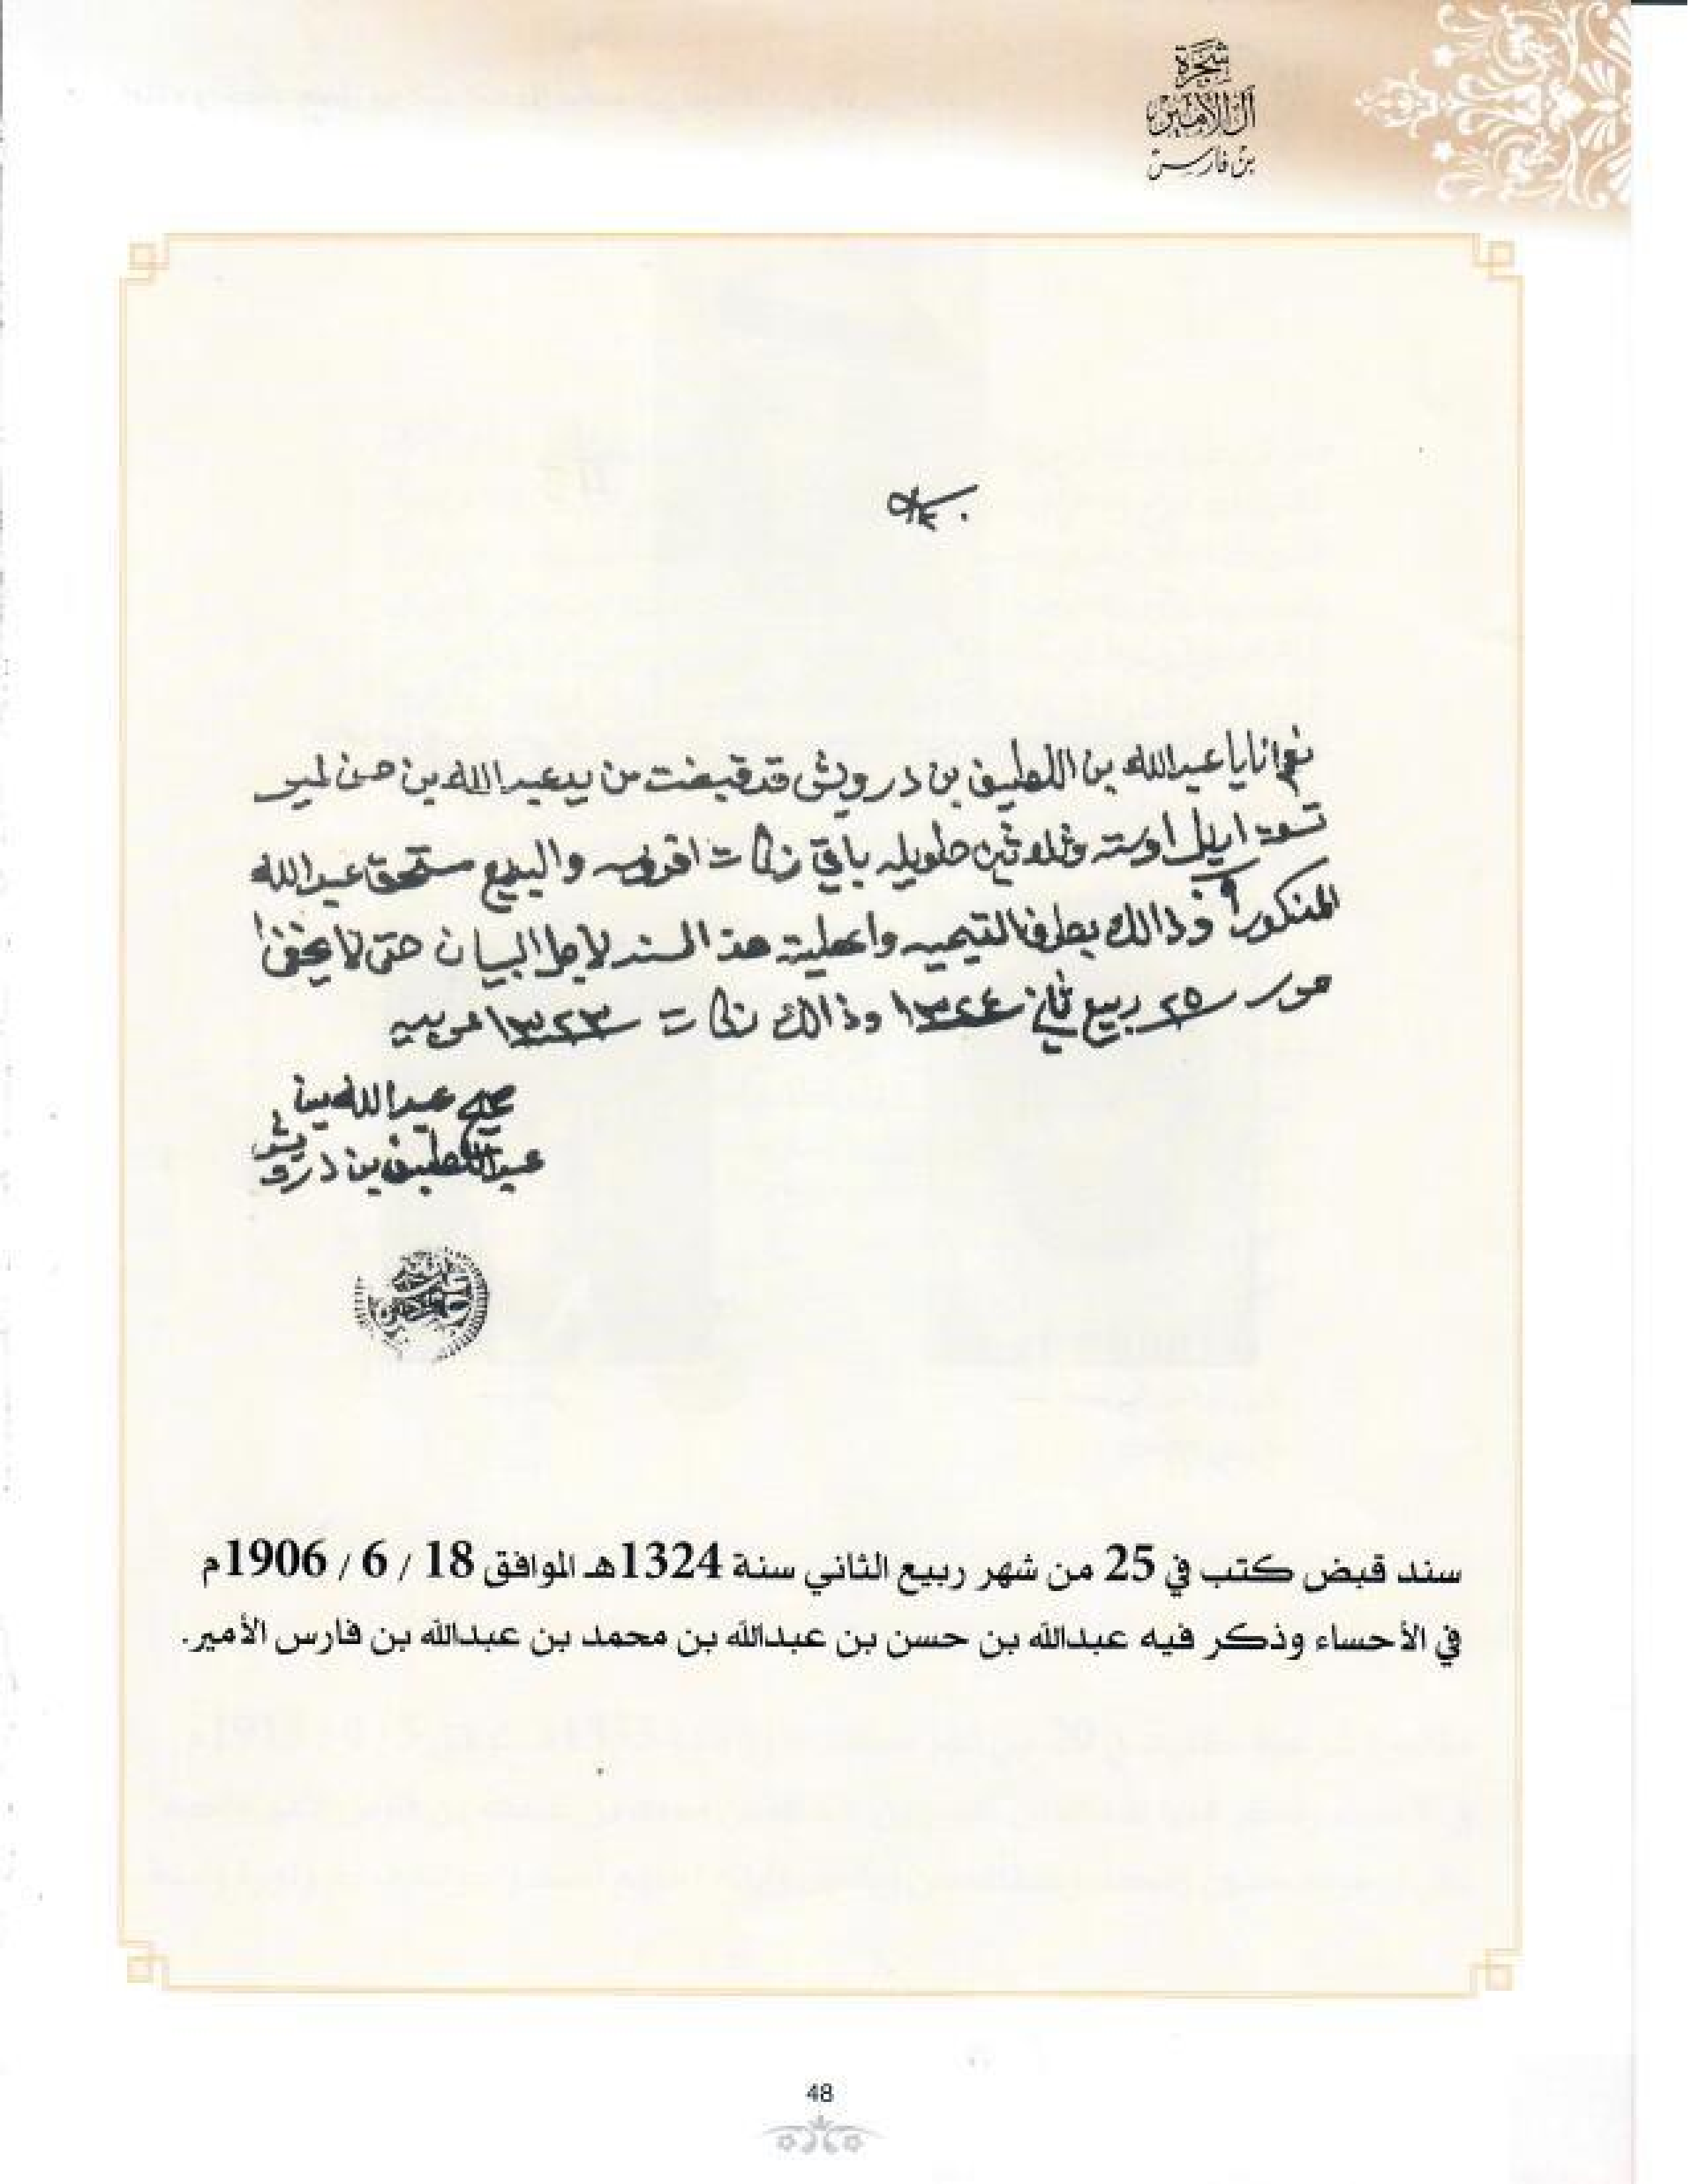 شجرة
آل الأمير
بن فارس
نعم انا يا عبدالله بن اللطيف بن درويش قد قبضت من يد عبدالله بن حسن لمير
تسعت اريل اوسته وثلاثين طويله باقي زكات والبديع مستحق عبدالله
المذكور وذالك بطرفالتيميه واعطيته هذ السند لاجل البيان حتى لا يخفا
حور ٢٥ ربيع ثاني ١٣٢٤ وذالك زكات ١٣٢٣
صحيح عبدالله بن
عبداللطيف بن درويش
سند قبض كتب في 25 من شهر ربيع الثاني سنة 1324هـ الموافق 18 / 6 / 1906م
في الأحساء وذكر فيه عبدالله بن حسن بن عبدالله بن محمد بن عبدالله بن فارس الأمير.
48